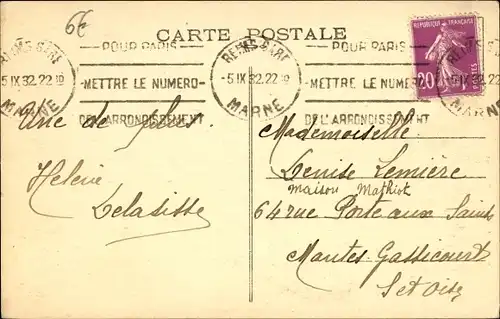 6€
CARTE POSTALE
REIMS GARE
5 IX 32.22
MARNE
POUR PARIS
METTRE LE NUMERO
DE L'ARRONDISSEMENT
REIMS GARE
5 IX 32.22
MARNE
POUR PARIS
METTRE LE NUMERO
DE L'ARRONDISSEMENT
REPUBLIQUE FRANCAISE
20
POSTES
Une de plus.
Helene
Delasisse
Mademoiselle
Denise Lemière
maison Mathiot
64 rue Porte aux Saints
Mantes-Gassicourt
S et Oise